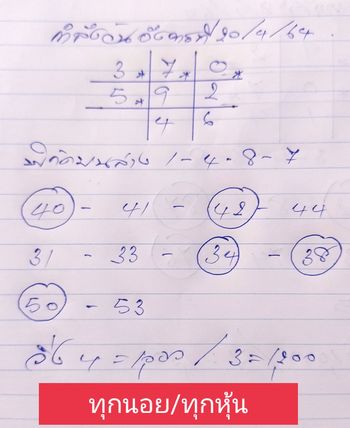 กำลังวันอังคารที่ 20/4/64
3. 7. 0.
5. 9 2
4 6
พิกัดบนล่าง 1-4-8-7
40 - 41 - 42 - 44
31 - 33 - 34 - 38
50 - 53
วิ่ง 4 = 1,000 / 3 = 1,200
ทุกนอย/ทุกหุ้น